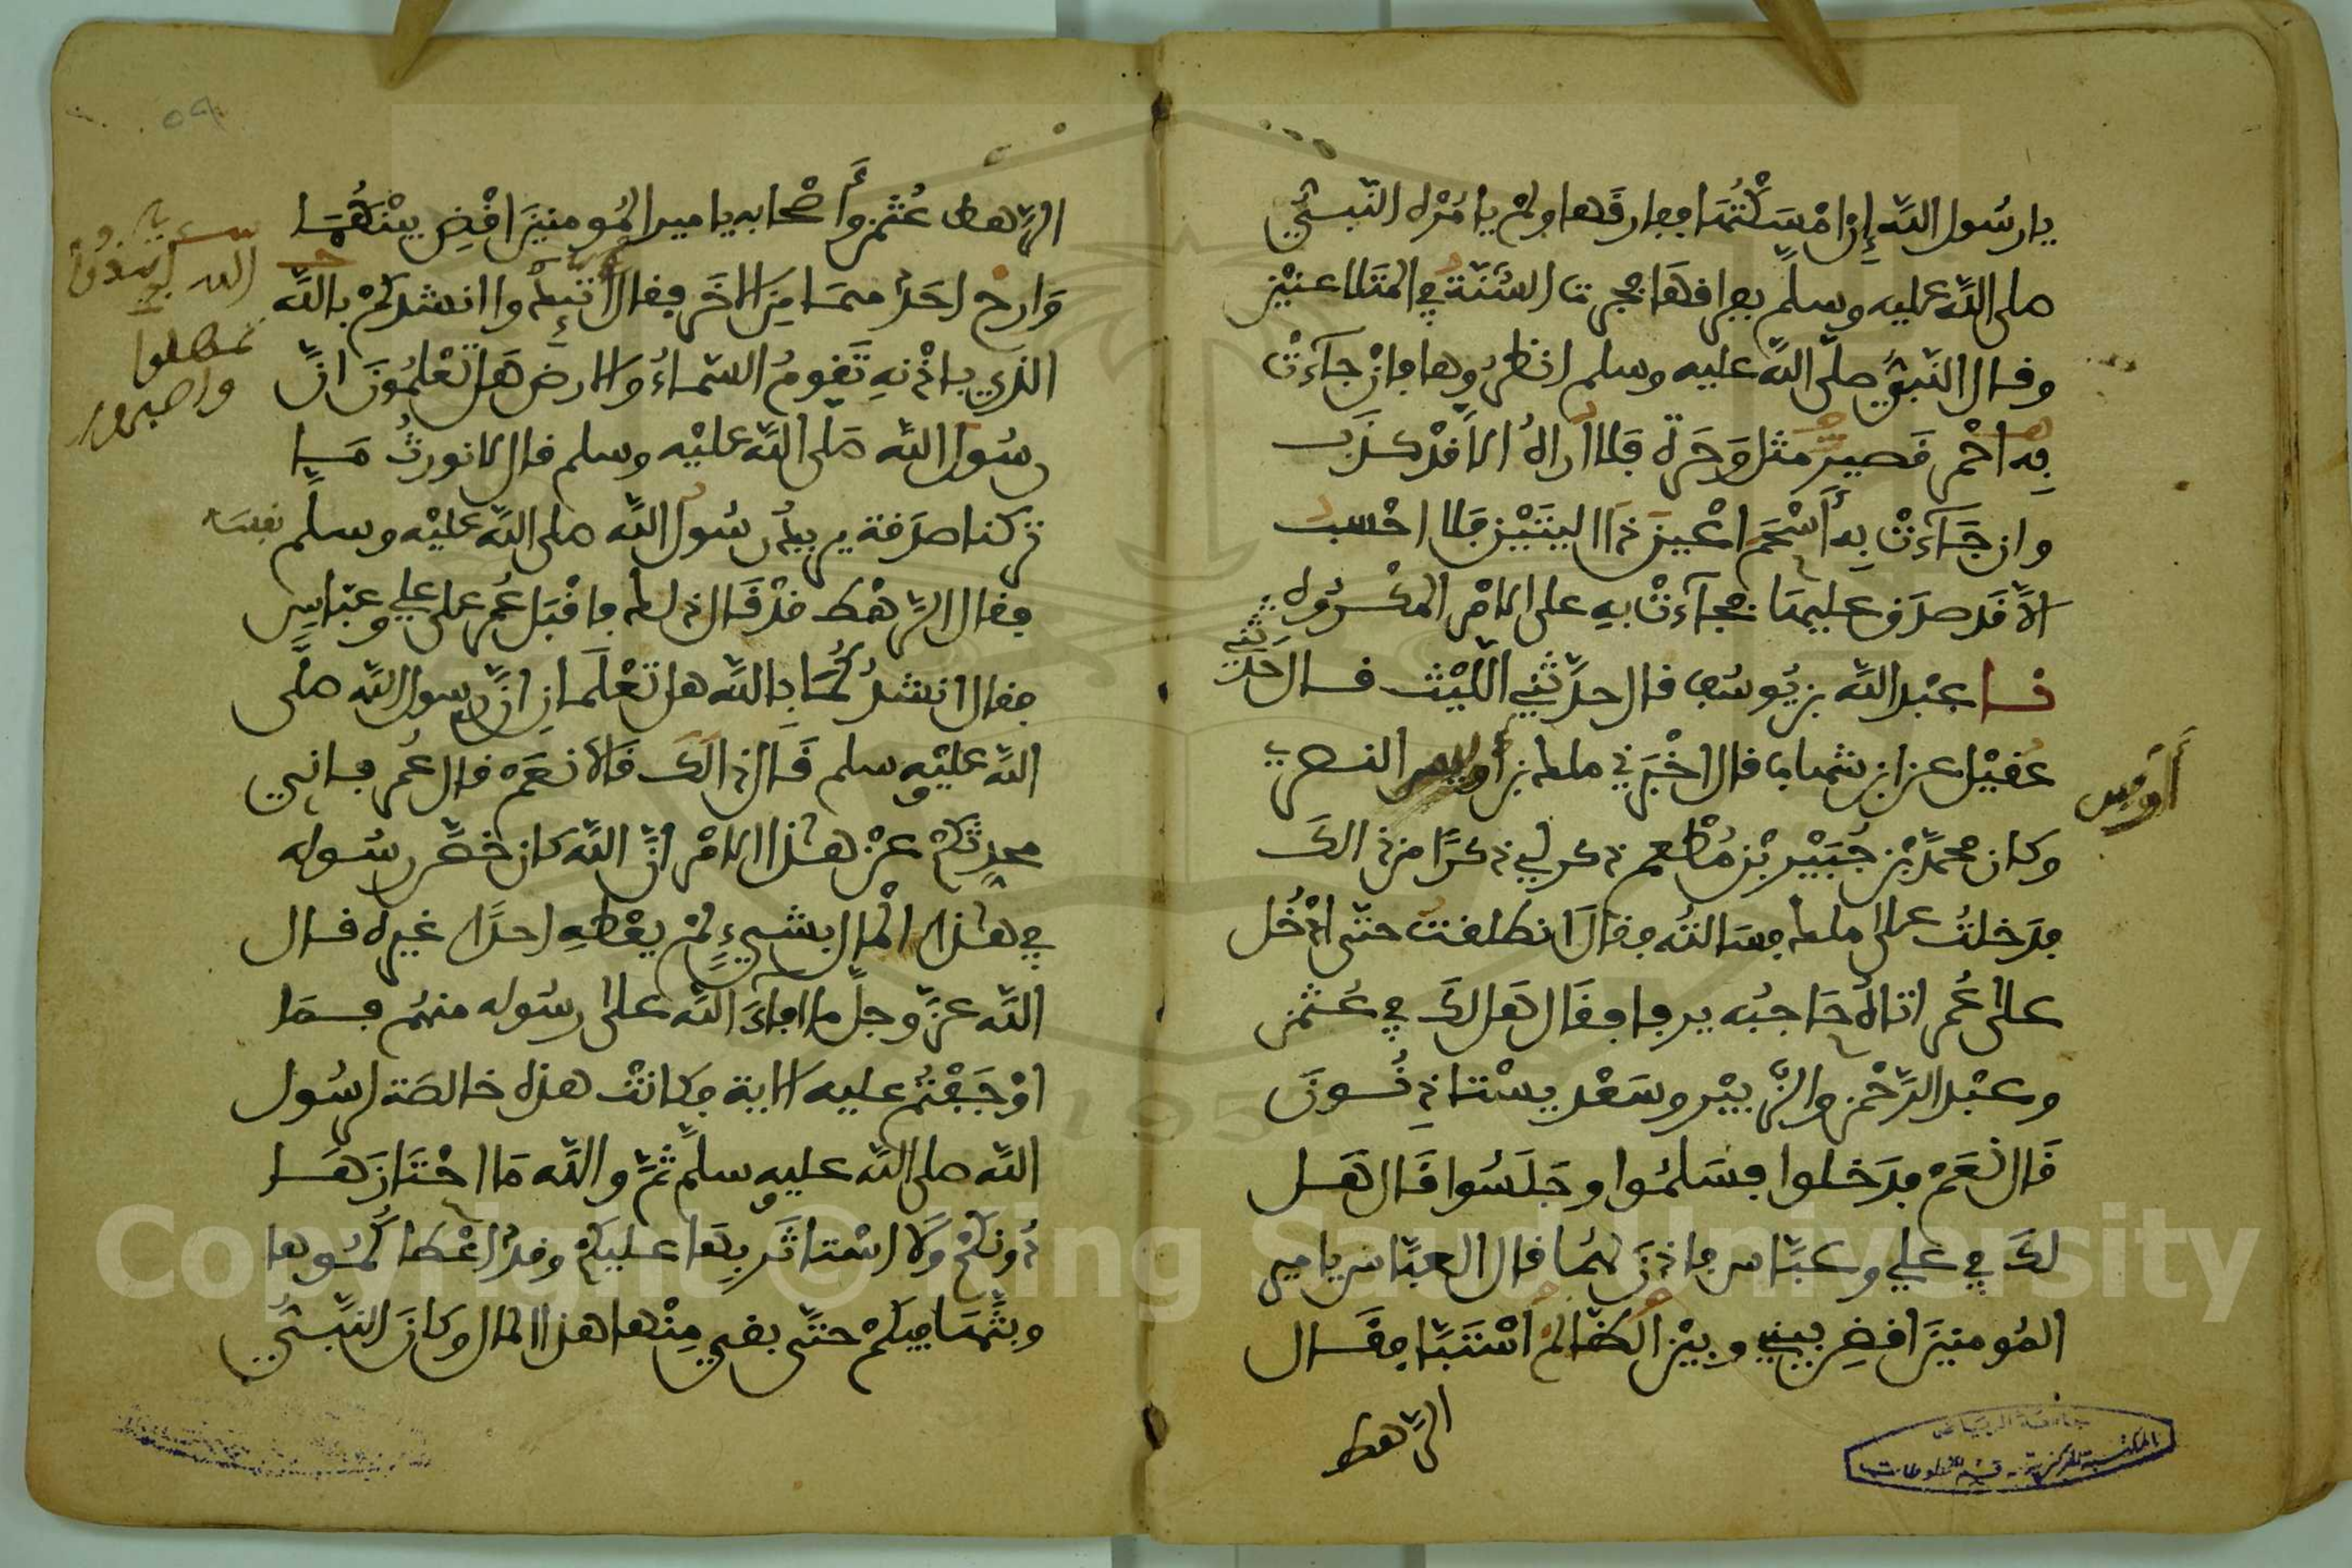 يا رسول الله إن امسكتها ففارقها ولم يامره النبي
صلى الله عليه وسلم بفراقها فجرت السنة في المتلاعنين
وقال النبي صلى الله عليه وسلم انظروها فان جاءت
به احمر قصيرا مثل وحرة فلا أراه الا قد كذب
وان جاءت به أسحم اعين ذا اليتين فلا احسب
الا قد صدق عليها فجاءت به على الامر المكروه
نا عبد الله بن يوسف قال حدثني الليث قال حدثني
عقيل عن ابن شهاب قال اخبرني ملك بن أوس النصري
أوس
وكان محمد بن جبير بن مطعم ذكر لي ذكرا من ذالك
فدخلت على ملك فسالته فقال انطلقت حتى ادخل
على عمر اتاه حاجبه يرفا فقال هل لك في عثمن
وعبد الرحمن والزبير وسعد يستاذنون
قال نعم فدخلوا فسلموا وجلسوا قال هل
لك في علي وعباس فاذن لهما قال العباس يا مير
المومنين اقض بيني وبين الظالم استبا فقال
الرهط
جامعة الرياض
المكتبة المركزية - قسم المخطوطات
٥٩
الرهط عثمن وأصحابه يا مير المومنين اقض بينهما
وارح احدهما من الاخر فقال اتئدوا انشدكم بالله
الذي باذنه تقوم السماء والارض هل تعلمون ان
رسول الله صلى الله عليه وسلم قال لا نورث ما
تركنا صدقة يريد رسول الله صلى الله عليه وسلم نفسه
فقال الرهط قد قال ذلك فاقبل عمر على علي وعباس
فقال انشدكما بالله هل تعلمان ان رسول الله صلى
الله عليه وسلم قال ذالك قالا نعم قال عمر فاني
محدثكم عن هذا الامر ان الله كان خص رسوله
في هذا المال بشيء لم يعطه احدا غيره قال
الله عز وجل ما افاء الله على رسوله منهم فما
اوجفتم عليه الاية فكانت هذه خالصة لرسول
الله صلى الله عليه وسلم ثم والله ما احتازها
دونكم ولا استاثر بها عليكم وقد اعطاكموها
وبثها فيكم حتى بقي منها هذا المال وكان النبي